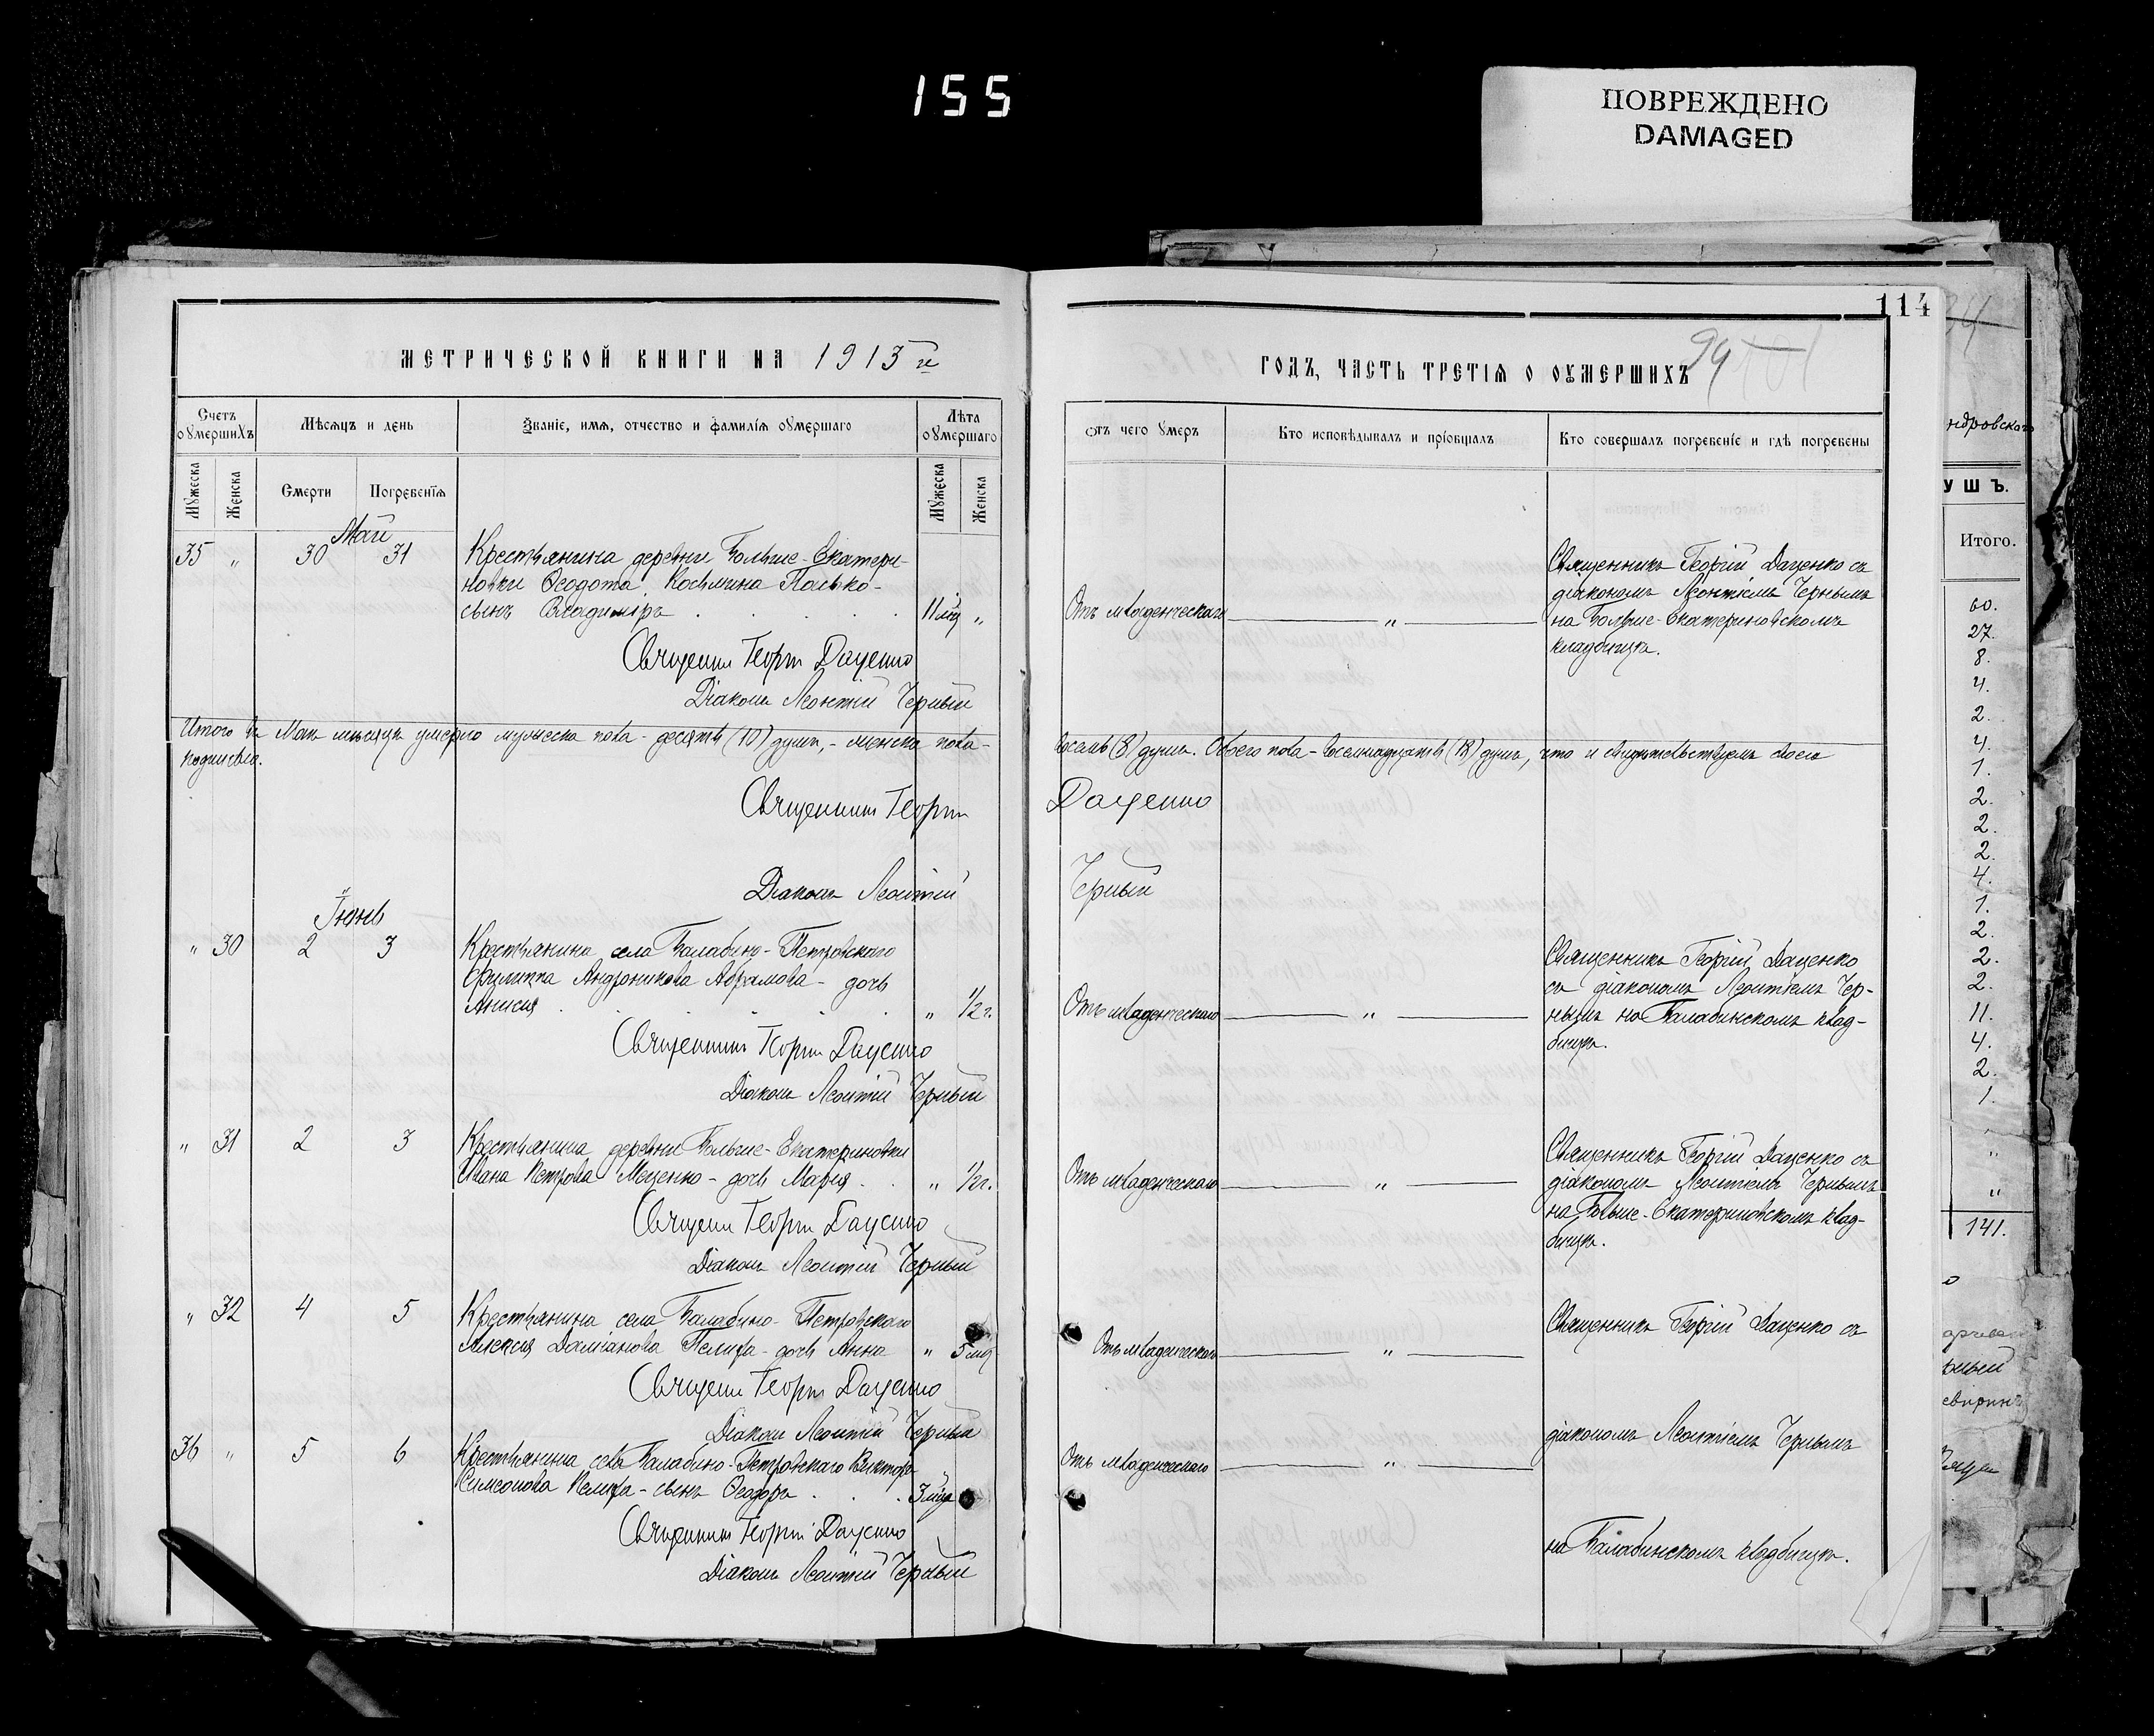 155
ПОВРЕЖДЕНО
DAMAGED
114
94
МЕТРИЧЕСКОЙ КНИГИ НА 1913 г
ГОДЪ, ЧАСТЬ ТРЕТІЯ О ОУМЕРШИХЪ
Счетъ оумершихъ
Мѣсяцъ и день
Званіе, имя, отчество и фамилія оумершаго
Лѣта оумершаго
Отъ чего умеръ
Кто исповѣдывалъ и пріобщалъ
Кто совершалъ погребеніе и гдѣ погребены
Мужеска
Женска
Смерти
Погребенія
Мужеска
Женска
Май
35 " 30 31 Крестьянина деревни Больше-Екатери-
новки Ѳеодота Косьмина Пасько-
сынъ Владиміръ . . . . 11 мц "
Отъ младенческаго "
Священникъ Георгій Даценко съ
діакономъ Леонтіемъ Чернымъ
на Больше-Екатериновскомъ
кладбищѣ.
Священ Георгій Даценко
Діаконъ Леонтій Черный
Итого въ Маѣ мѣсяцѣ умерло мужеска пола - десять (10) душъ, - женска пола -
восемь (8) душъ. Обоего пола - восемнадцать (18) душъ, что и свидѣтельствуемъ своею
подписью.
Священникъ Георгій Даценко
Діаконъ Леонтій Черный
Іюнь
" 30 2 3 Крестьянина села Балабино-Петровскаго
Филиппа Андроникова Абрамова - дочь
Анисія . . . . . " 1/2 г.
Отъ младенческаго "
Священникъ Георгій Даценко
съ діакономъ Леонтіемъ Чер-
нымъ на Балабинскомъ клад-
бищѣ.
Священникъ Георгій Даценко
Діаконъ Леонтій Черный
" 31 2 3 Крестьянина деревни Больше-Екатериновки
Ивана Петрова Меценко - дочь Марія . . " 1/2 г.
Отъ младенческаго "
Священникъ Георгій Даценко съ
діакономъ Леонтіемъ Чернымъ
на Больше-Екатериновскомъ клад-
бищѣ.
Священ Георгій Даценко
Діаконъ Леонтій Черный
" 32 4 5 Крестьянина села Балабино-Петровскаго
Алексія Даміанова Пелиха - дочь Анна " 5 мц
Отъ младенческаго "
Священникъ Георгій Даценко съ
Священ Георгій Даценко
Діаконъ Леонтій Черный
діакономъ Леонтіемъ Чернымъ
36 " 5 6 Крестьянина села Балабино-Петровскаго Виктора
Самсонова Пелиха - сынъ Ѳеодоръ . . . 3 мца
Отъ младенческаго "
Священникъ Георгій Даценко
Діаконъ Леонтій Черный
на Балабинскомъ кладбищѣ.
ндровскаго
УШЪ.
Итого.
60.
27.
8.
4.
2.
4.
1.
2.
2.
2.
4.
1.
2.
2.
2.
11.
4.
2.
1.
"
"
"
141.